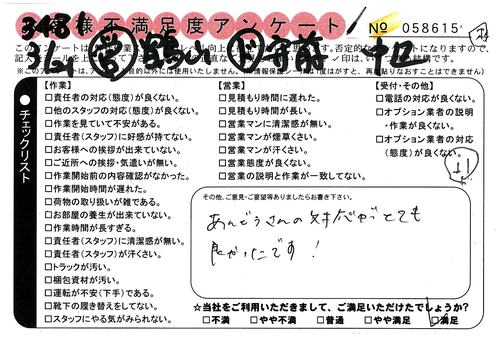 お客様不満足度アンケート
No 058615
【作業】
□責任者の対応(態度)が良くない。
□他のスタッフの対応(態度)が良くない。
□作業を見ていて不安がある。
□責任者(スタッフ)に好感が持てない。
□お客様への挨拶が出来ていない。
□ご近所への挨拶・気遣いが無い。
□作業開始前の内容確認がなかった。
□作業開始時間が遅れた。
□荷物の取り扱いが雑である。
□お部屋の養生が出来ていない。
□作業時間が長すぎる。
□責任者(スタッフ)に清潔感が無い。
□責任者(スタッフ)が汗くさい。
□トラックが汚い。
□梱包資材が汚い。
□運転が不安(下手)である。
□靴下の履き替えをしてない。
□スタッフにやる気がみられない。
●チェックリスト
【営業】
□見積もり時間に遅れた。
□見積もり時間が長い。
□営業マンに清潔感が無い。
□営業マンが煙草くさい。
□営業マンが汗くさい。
□営業態度が良くない。
□営業の説明と作業が一致してない。
【受付・その他】
□電話の対応が良くない。
□オプション業者の説明
・作業が良くない。
□オプション業者の対応
(態度)が良くない。
その他、ご意見・ご要望等ありましたらお書き下さい。
あんどうさんの対応がとても
良かったです!
☆当社をご利用いただきまして、ご満足いただけたでしょうか?
□不満 □やや不満 □普通 □やや満足 □満足